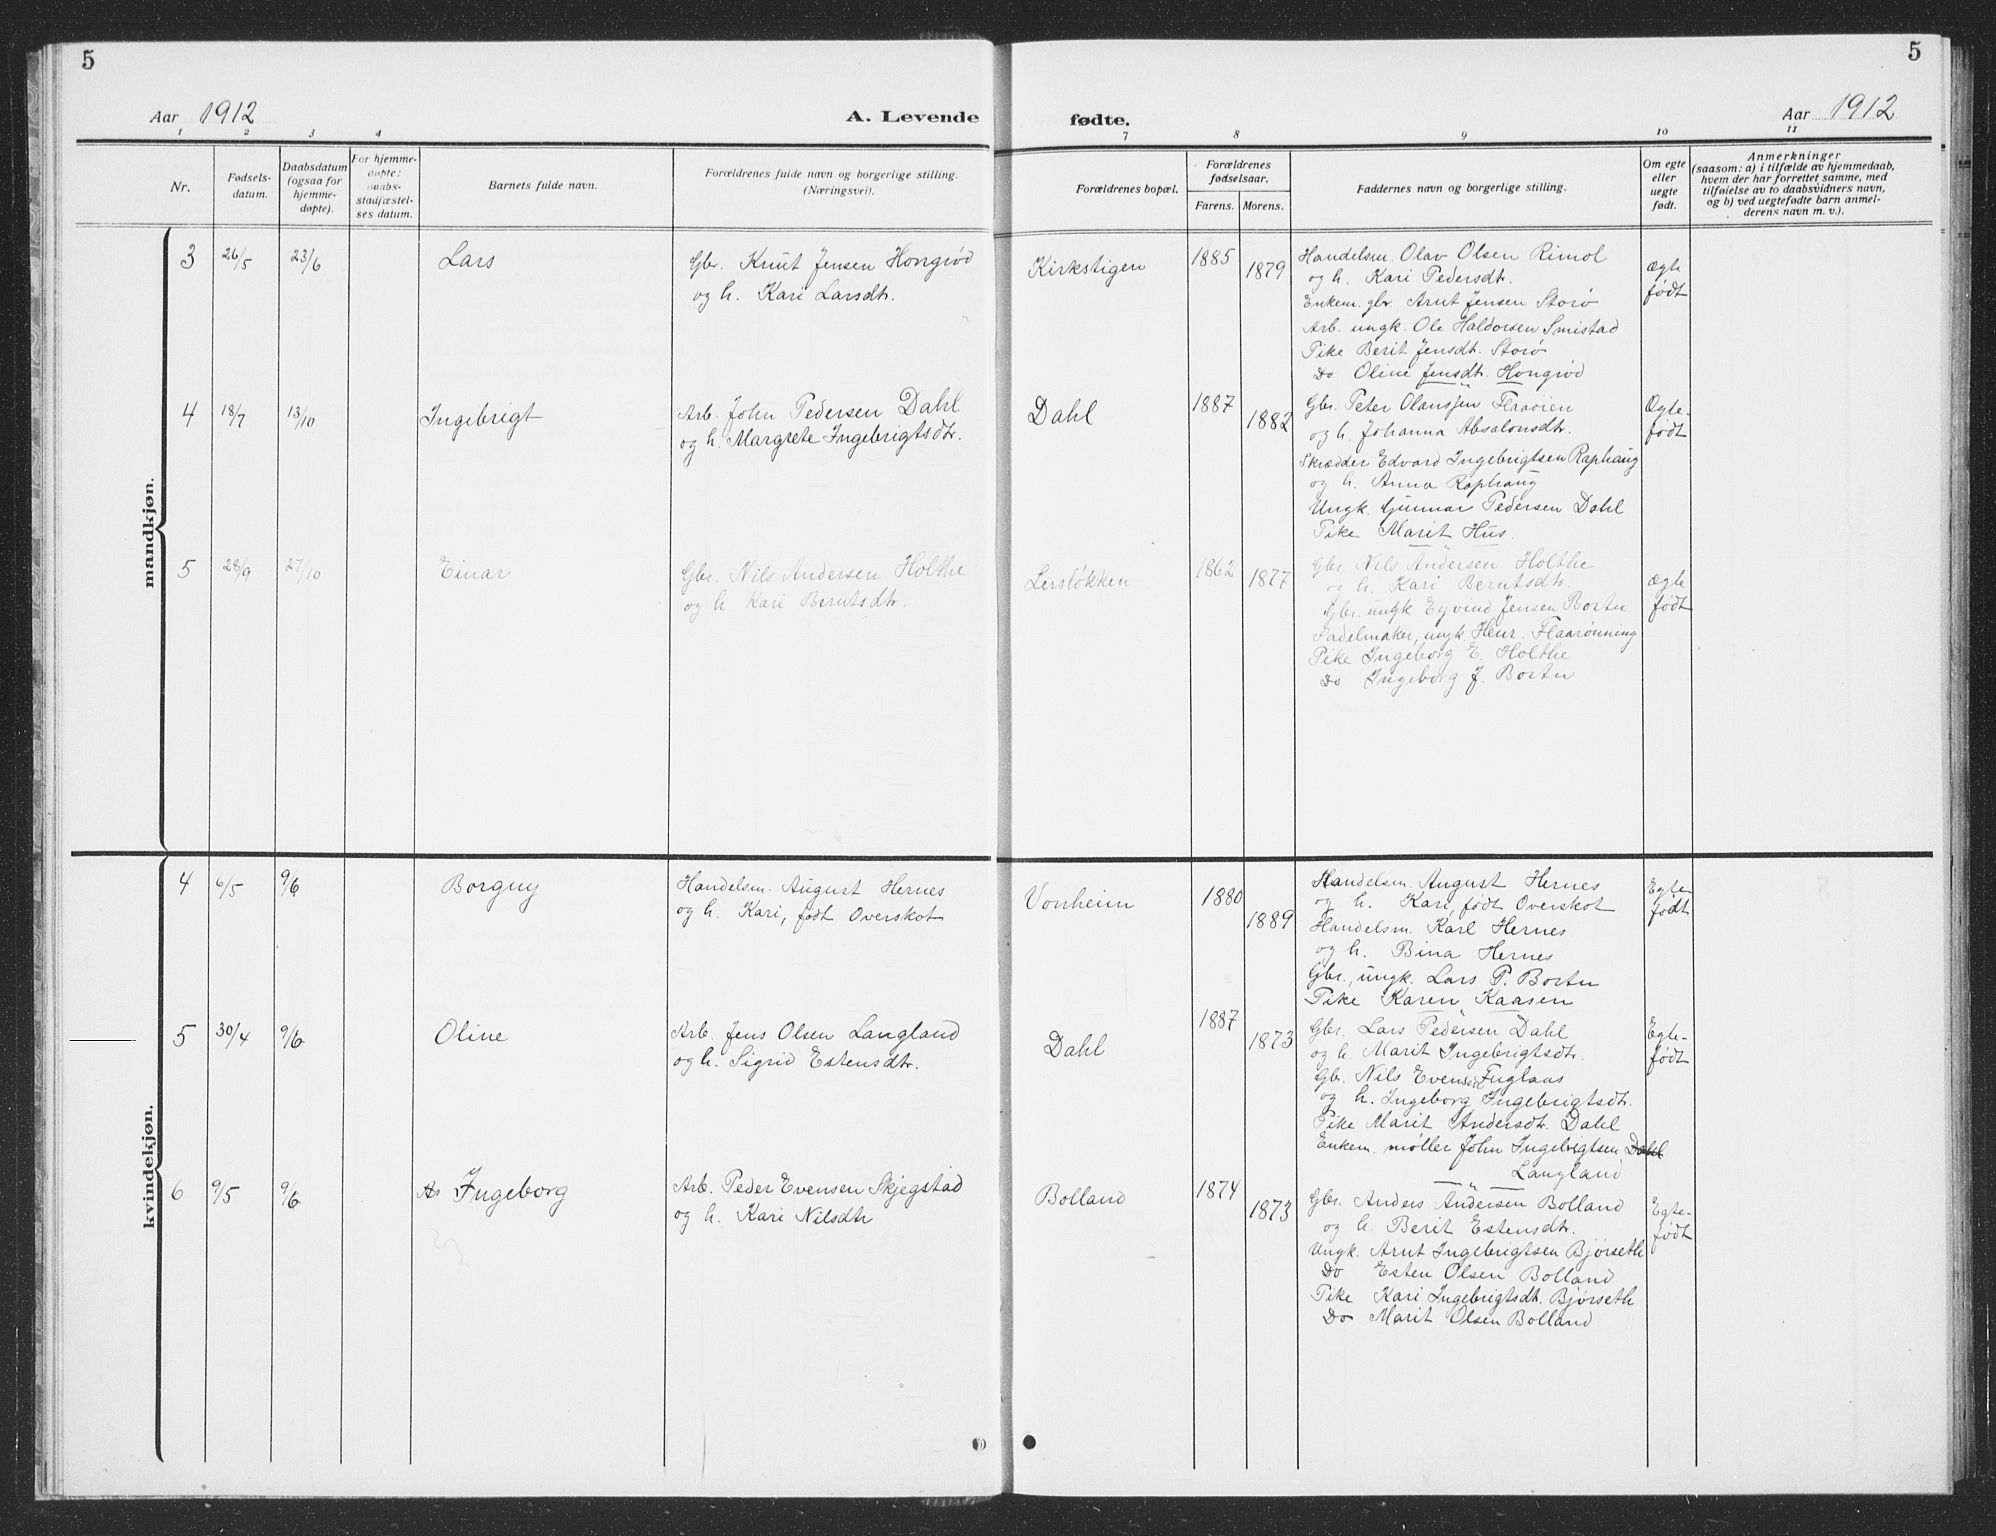 5
5
Aar 1912
A. Levende
fødte.
Aar 1912
1 2 3 4
7 8 9 10 11
Nr.
Fødsels-
datum.
Daabsdatum
(ogsaa for
hjemme-
døpte).
For hjemme-
døpte:
daabs-
stadfæstel-
ses datum.
Barnets fulde navn.
Forældrenes fulde navn og borgerlige stilling.
(Næringsvei).
Forældrenes bopæl.
Forældrenes
fødselsaar.
Farens. Morens.
Faddernes navn og borgerlige stilling.
Om egte
eller
uegte
født.
Anmerkninger
(saasom: a) i tilfælde av hjemmedaab,
hvem der har forrettet samme, med
tilføielse av to daabsvidners navn,
og b) ved uegtefødte barn anmel-
derens navn m. v.).
mandkjøn.
3 26/5 23/6 Lars
Gbr. Knut Jensen Hongrød
og h. Kari Larsdtr.
Kirkstigen 1885 1879
Handelsm. Olav Olsen Rimol
og h. Kari Pedersdtr.
Enkem. gbr. Arnt Jensen Storø
Arb. ungk. Ole Haldorsen Smistad
Pike Berit Jensdtr. Storø
Do Oline Jensdtr. Hongrød
ægte
født
4 18/7 13/10 Ingebrigt
Arb. John Pedersen Dahl
og h. Margrete Ingebrigtsdtr.
Dahl 1887 1882
Gbr. Peter Olanssen Flaaøien
og h. Johanna Absalonsdtr.
Skrædder Edvard Ingebrigtsen Raphaug
og h. Anna Raphaug
Ungk. Gunnar Pedersen Dahl
Pike Marit Hus.
Ægte-
født
5 28/9 27/10 Einar
Gbr. Nils Andersen Holthe
og h. Kari Berntsdtr.
Lersløkken 1862 1877
Gbr. Nils Andersen Holthe
og h. Kari Berntsdtr.
Gbr. ungk Eyvind Jensen Bortn
Sadelmaker, ungk. Henr. Flaarønning
Pike Ingeborg E. Holthe
Do Ingeborg J. Bortn
ægte
født
kvindekjøn.
4 6/5 9/6 Borguy
Handelsm. August Hernes
og h. Kari, født Overskot
Vonheim 1880 1889
Handelsm. August Hernes
og h. Kari, født Overskot
Handelsm. Karl Hernes
og h. Bina Hernes
Gbr., ungk. Lars P. Bortn
Pike Karen Kaasen
Egte
født
5 30/4 9/6 Oline
Arb. Jens Olsen Langland
og h. Sigrid Estensdtr.
Dahl 1887 1873
Gbr. Lars Pedersen Dahl
og h. Marit Ingebrigtsdtr.
Gbr. Nils Evensen Fuglaas
og h. Ingeborg Ingebrigtsdtr.
Pike Marit Andersdtr. Dahl
Enkem. møller John Ingebrigtsen Dahl
Langland
Egte-
født
6 9/5 9/6 Ingeborg
Arb. Peder Evensen Skjegstad
og h. Kari Nilsdtr
Bolland 1874 1873
Gbr. Anders Andersen Bolland
og h. Berit Estensdtr.
Ungk. Arnt Ingebrigtsen Bjørseth
Do Esten Olsen Bolland
Pike Kari Ingebrigtsdtr. Bjørseth
Do Marit Olsen Bolland
Egte-
født